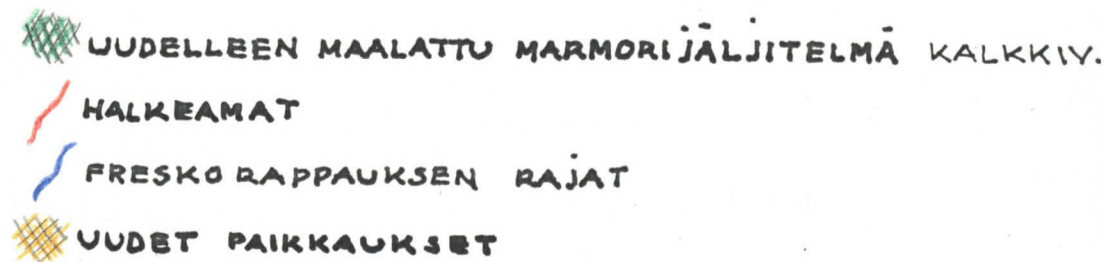 UUDELLEEN MAALATTU MARMORIJÄLJITELMÄ KALKKIV.
HALKEAMAT
FRESKO RAPPAUKSEN RAJAT
UUDET PAIKKAUKSET